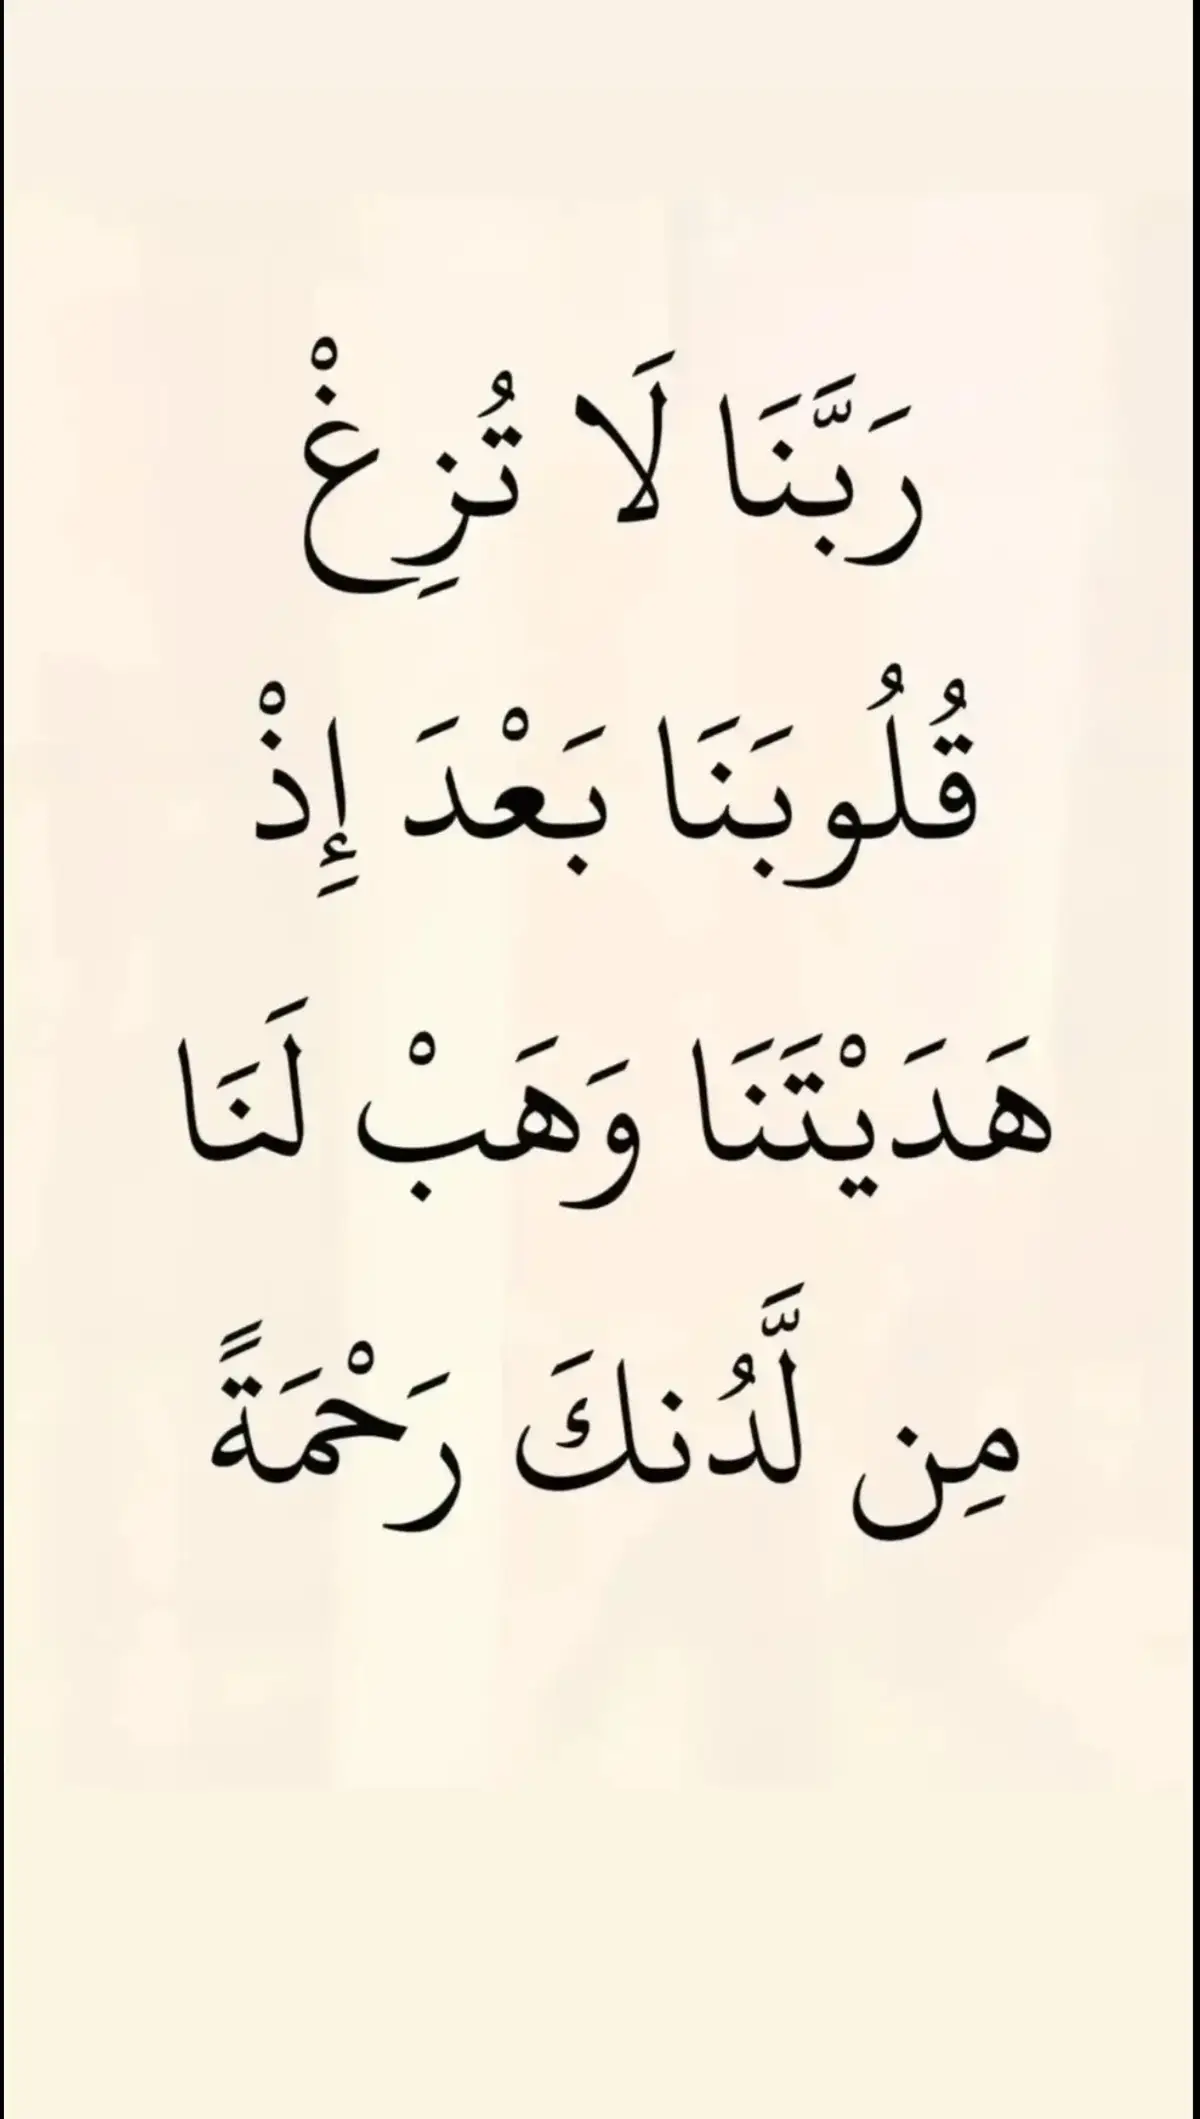 رَبَّنَا لَا تُزِغْ
قُلُوبَنَا بَعْدَ إِذْ
هَدَيْتَنَا وَهَبْ لَنَا
مِن لَّدُنكَ رَحْمَةً